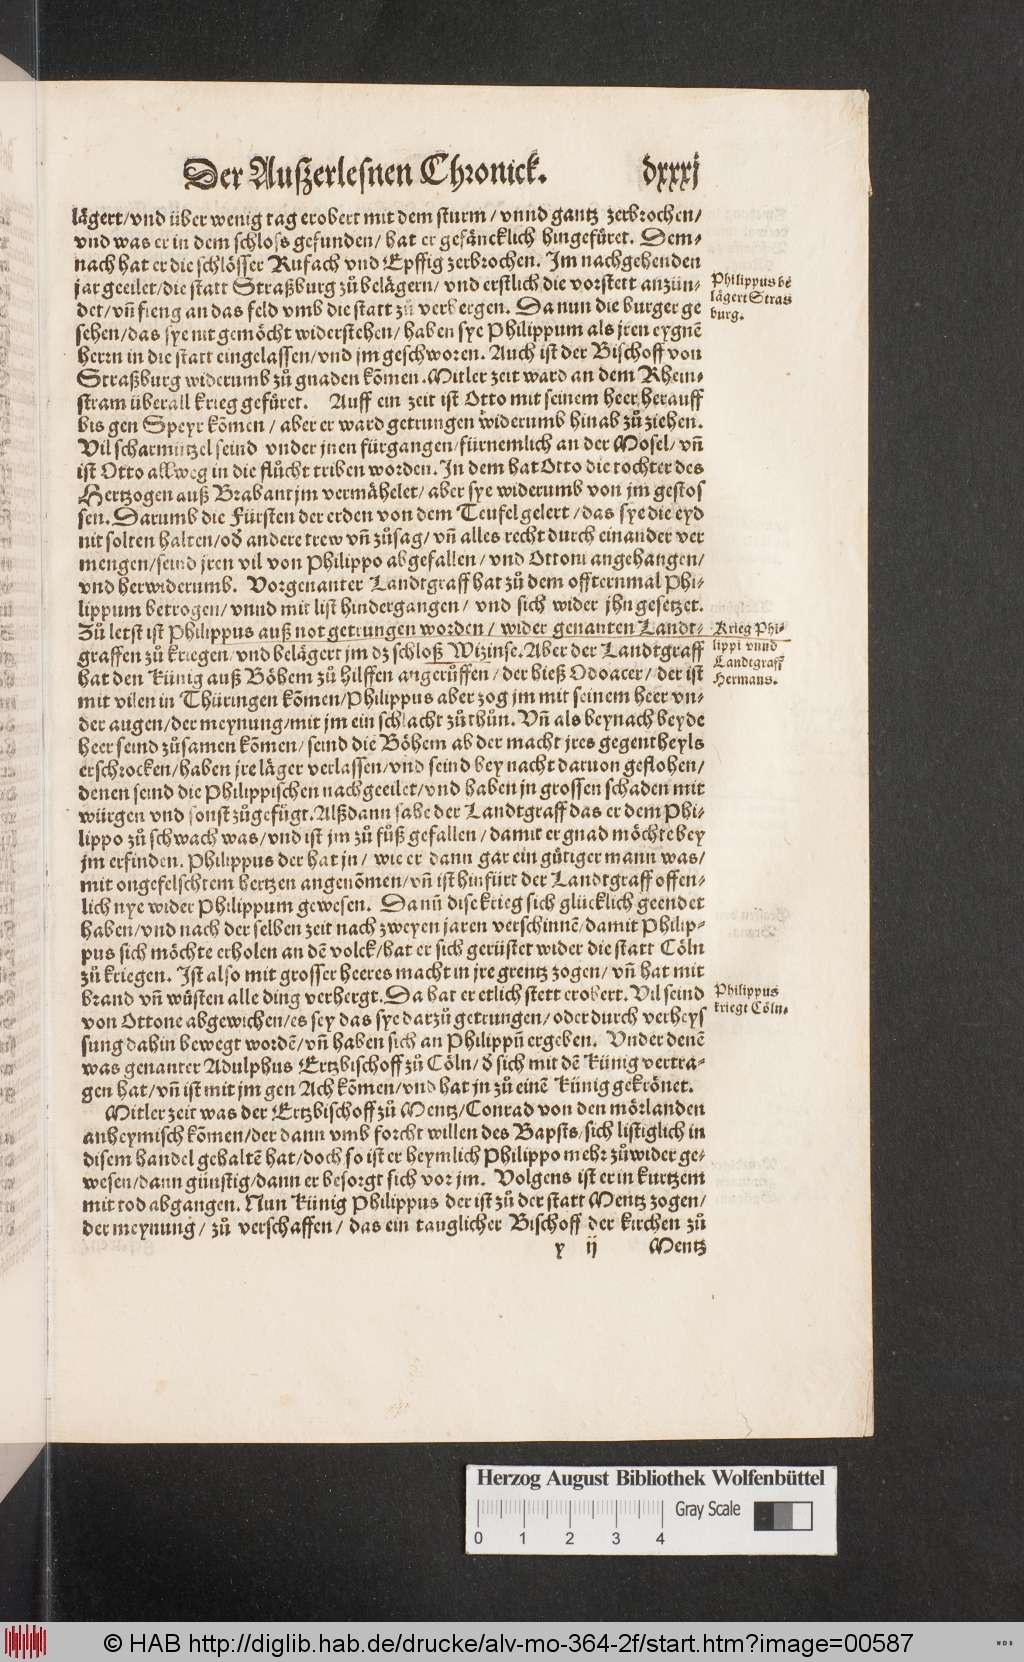 Der Außerlesnen Chronick. dxxxj
lägert/vnd über wenig tag erobert mit dem sturm/vnnd gantz zerbrochen/
vnd was er in dem schloss gefunden/hat er gefäncklich hingefüret. Dem-
nach hat er die schlösser Rufach vnd Epffig zerbrochen. Im nachgehenden
jar geeilet/die statt Straßburg zů belägern/vnd erstlich die vorstett anzün-
det/vn̄ fieng an das feld vmb die statt zů verhergen. Da nun die burger ge
sehen/das sye nit gemöcht widerstehen/haben sye Philippum als jren eygnē
herrn in die statt eingelassen/vnd jm geschworen. Auch ist der Bischoff von
Straßburg widerumb zů gnaden kōmen. Mitler zeit ward an dem Rhein-
stram überall krieg gefüret. Auff ein zeit ist Otto mit seinem heer herauff
bis gen Speyr kōmen/aber er ward getrungen widerumb hinab zů ziehen.
Vil scharmützel seind vnder jnen fürgangen/fürnemlich an der Mosel/vn̄
ist Otto allweg in die flůcht triben worden. In dem hat Otto die tochter des
Hertzogen auß Brabant jm vermähelet/aber sye widerumb von jm gestos
sen. Darumb die Fürsten der erden von dem Teufel gelert/das sye die eyd
nit solten halten/od̄ andere trew vn̄ zůsag/vn̄ alles recht durch einander ver
mengen/seind jren vil von Philippo abgefallen/vnd Ottoni angehangen/
vnd herwiderumb. Vorgenanter Landtgraff hat zů dem offternmal Phi-
lippum betrogen/vnnd mit list hindergangen/vnd sich wider jhn gesetzet.
Zů letst ist Philippus auß not getrungen worden/wider genanten Landt-
graffen zů kriegen/vnd belägert jm dz schloß Wizinse. Aber der Landtgraff
hat den Künig auß Böhem zů hilffen angerůffen/der hieß Odoacer/der ist
mit vilen in Thüringen kōmen/Philippus aber zog jm mit seinem heer vn-
der augen/der meynung/mit jm ein schlacht zů thůn. Vn̄ als beynach beyde
heer seind zůsamen kōmen/seind die Böhem ab der macht jres gegentheyls
erschrocken/haben jre läger verlassen/vnd seind bey nacht daruon geflohen/
denen seind die Philippischen nachgeeilet/vnd haben jn grossen schaden mit
würgen vnd sonst zůgefügt. Alßdann sahe der Landtgraff das er dem Phi-
lippo zů schwach was/vnd ist jm zů fůß gefallen/damit er gnad möchte bey
jm erfinden. Philippus der hat jn/wie er dann gar ein gütiger mann was/
mit ongefelschtem hertzen angenōmen/vn̄ ist hinfürt der Landtgraff offen-
lich nye wider Philippum gewesen. Da nun̄ dise krieg sich glücklich geendet
haben/vnd nach der selben zeit nach zweyen jaren verschinnē/damit Philip-
pus sich möchte erholen an dē volck/hat er sich gerüstet wider die statt Cöln
zů kriegen. Ist also mit grosser heeres macht in jre grentz zogen/vn̄ hat mit
brand vn̄ wüsten alle ding verhergt. Da hat er etlich stett erobert. Vil seind
von Ottone abgewichen/es sey das sye darzů getrungen/oder durch verheys
sung dahin bewegt wordē/vn̄ haben sich an Philippū ergeben. Vnder denē
was genanter Adulphus Ertzbischoff zů Cöln/d̄ sich mit dē Künig vertra-
gen hat/vn̄ ist mit jm gen Ach kōmen/vnd hat jn zů einē Künig gekrönet.
Mitler zeit was der Ertzbischoff zů Mentz/Conrad von den mörlanden
anheymisch kōmen/der dann vmb forcht willen des Bapsts/sich listiglich in
disem handel gehaltē hat/doch so ist er heymlich Philippo mehr zůwider ge-
wesen/dann günstig/dann er besorgt sich vor jm. Volgens ist er in kurtzem
mit tod abgangen. Nun Künig Philippus der ist zů der statt Mentz zogen/
der meynung/zů verschaffen/das ein tauglicher Bischoff der kirchen zů
y ij Mentz
Philippus be
lägert Stras
burg.
Krieg Phi-
lippi vnnd
Landtgraff
Hermans.
Philippus
kriegt Cöln.
Herzog August Bibliothek Wolfenbüttel
0 1 2 3 4 Gray Scale
© HAB http://diglib.hab.de/drucke/alv-mo-364-2f/start.htm?image=00587